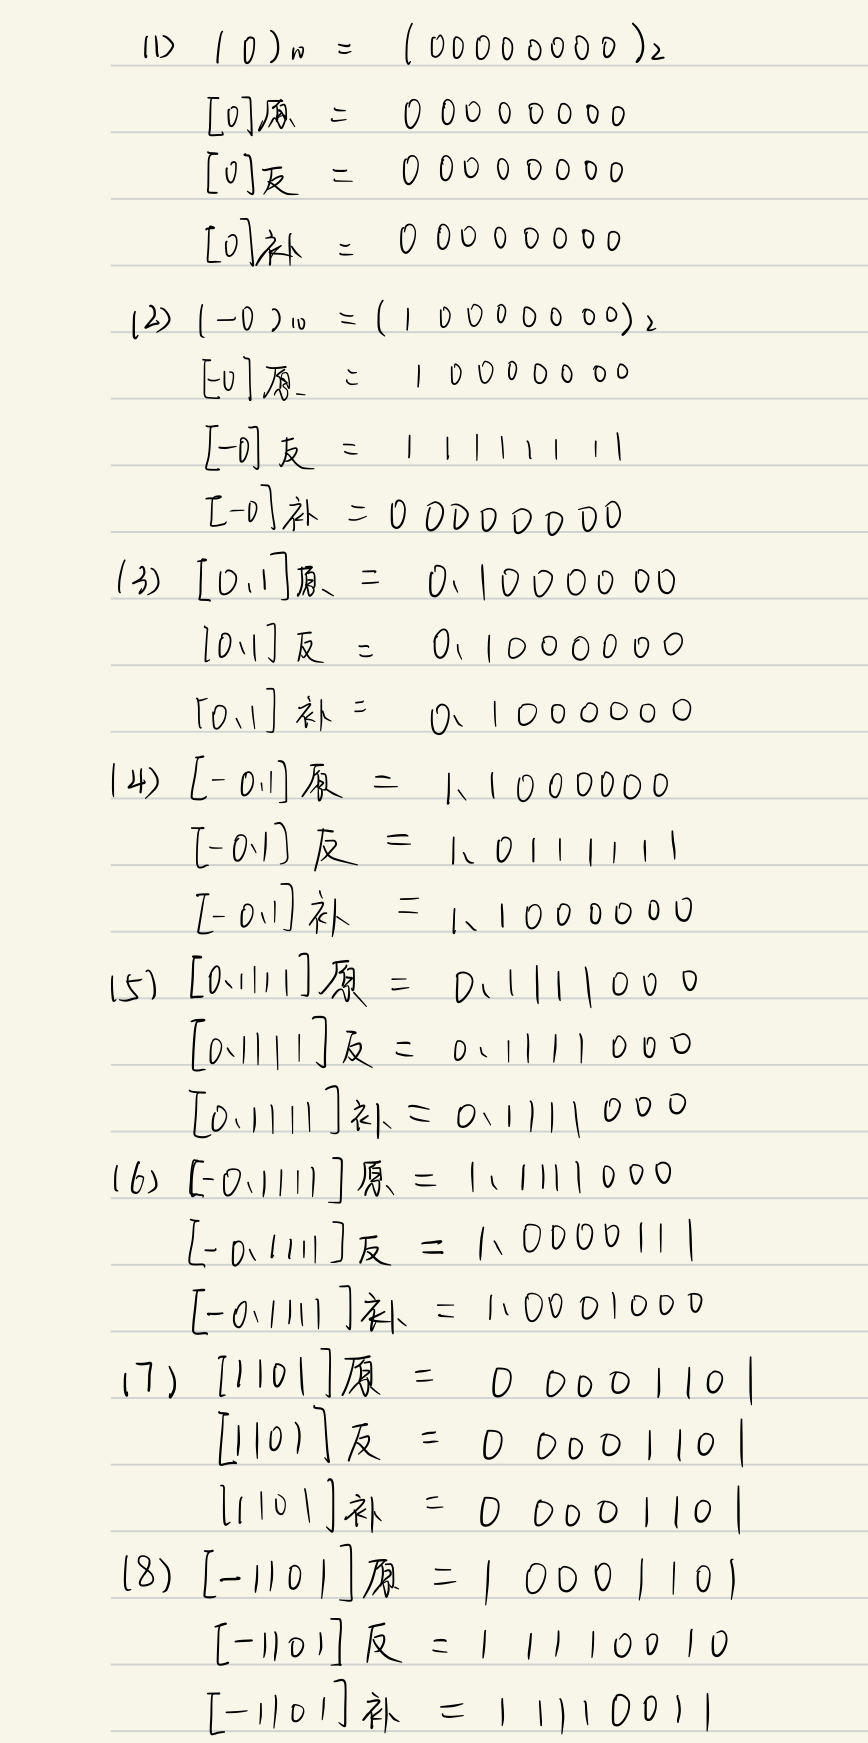 (1) (0)₁₀ = (00000000)₂
[0]原 = 00000000
[0]反 = 00000000
[0]补 = 00000000
(2) (-0)₁₀ = (10000000)₂
[-0]原 = 10000000
[-0]反 = 11111111
[-0]补 = 00000000
(3) [0.1]原 = 0.1000000
[0.1]反 = 0.1000000
[0.1]补 = 0.1000000
(4) [-0.1]原 = 1.1000000
[-0.1]反 = 1.0111111
[-0.1]补 = 1.1000000
(5) [0.1111]原 = 0.1111000
[0.1111]反 = 0.1111000
[0.1111]补 = 0.1111000
(6) [-0.1111]原 = 1.1111000
[-0.1111]反 = 1.0000111
[-0.1111]补 = 1.0001000
(7) [1101]原 = 0 0001101
[1101]反 = 0 0001101
[1101]补 = 0 0001101
(8) [-1101]原 = 1 0001101
[-1101]反 = 11110010
[-1101]补 = 11110011